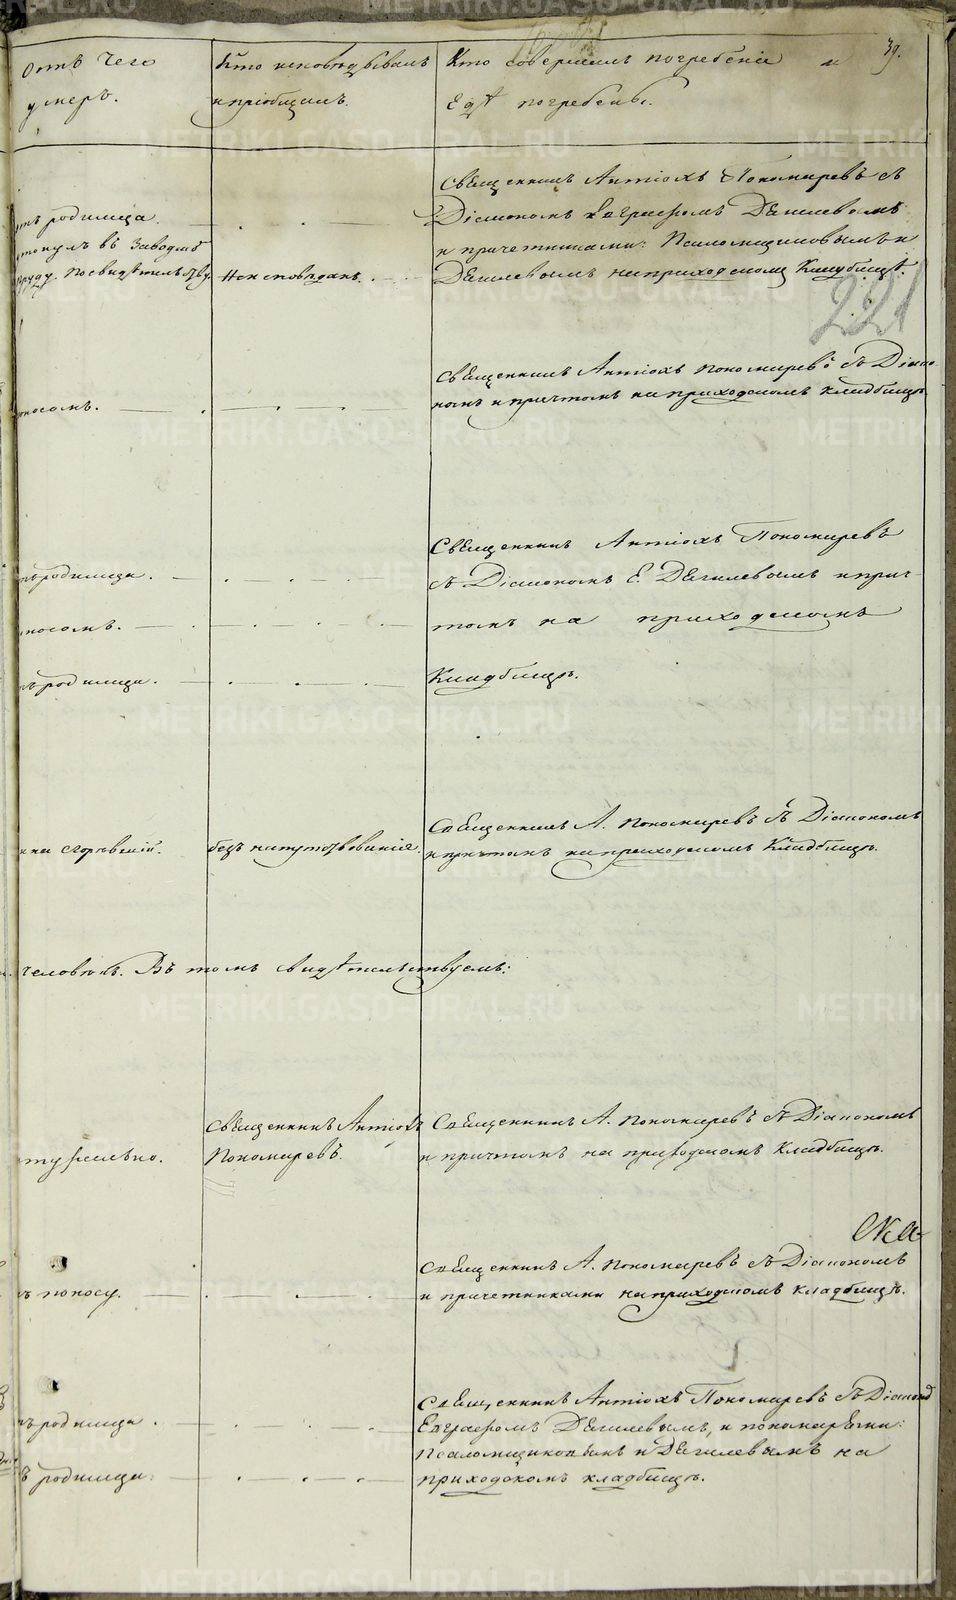 39.
Отъ чего
умеръ.
Кто исповѣдывалъ
и пріобщалъ.
Кто совершалъ погребеніе и
гдѣ погребены.
родимца.
утонулъ въ Заводск
пруду. По свидѣтельству.
Не исповѣданъ.
Священникъ Антіохъ Пономаревъ съ
Діакономъ Евграфомъ Дягилевымъ
и причетниками: Псаломщиковымъ и
Дягилевымъ на приходскомъ Кладбищѣ.
221
поносомъ.
Священникъ Антіохъ Пономаревъ съ Діако
номъ и причтомъ на приходскомъ кладбищѣ.
родимца.
поносомъ.
родимца.
Священникъ Антіохъ Пономаревъ
съ Діакономъ Е. Дягилевымъ и прич-
томъ на приходскомъ
Кладбищѣ.
сгорѣвшій.
безъ напутствованія.
Священникъ А. Пономаревъ съ Діакономъ
и причтомъ на приходскомъ Кладбищѣ.
человѣкъ. Въ томъ свидѣтельствуемъ:
Священникъ Антіохъ
Пономаревъ.
Священникъ А. Пономаревъ съ Діакономъ
и причтомъ на приходскомъ кладбищѣ.
поносу.
Священникъ А. Пономаревъ съ Діакономъ
и причетниками на приходскомъ кладбищѣ.
родимца.
родимца.
Священникъ Антіохъ Пономаревъ съ Діакон
Евграфомъ Дягилевымъ, и пономарями:
Псаломщиковымъ и Дягилевымъ на
приходскомъ кладбищѣ.
METRIKI.GASO-URAL.RU